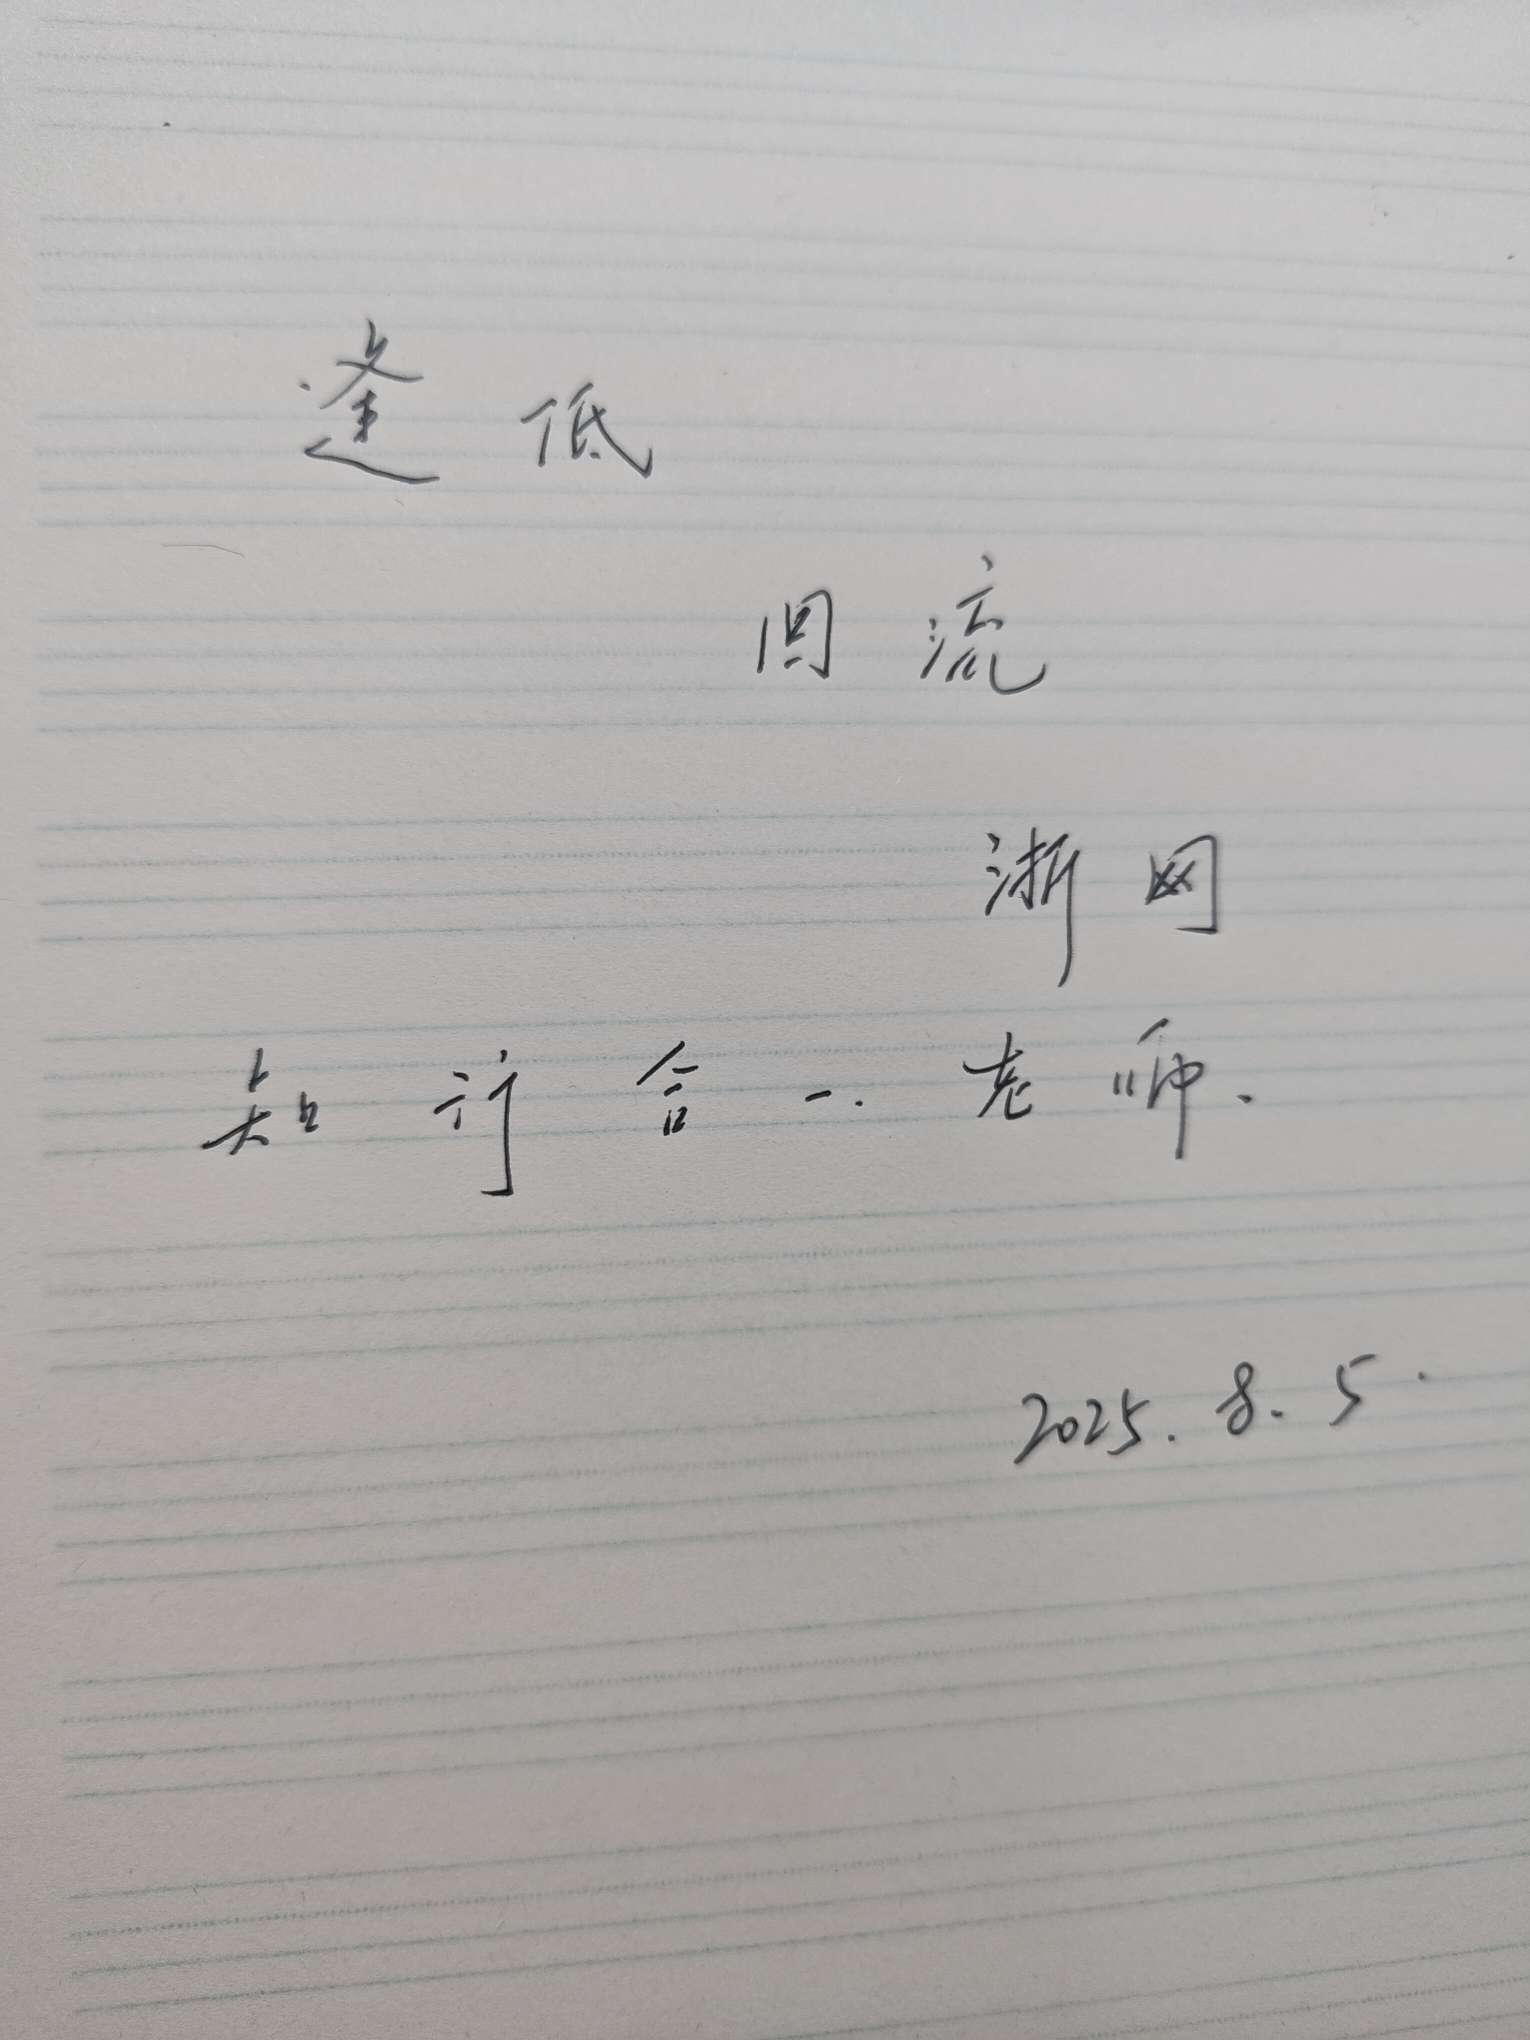 逢低
回流
浙网
知行合一.老师.
2025.8.5.